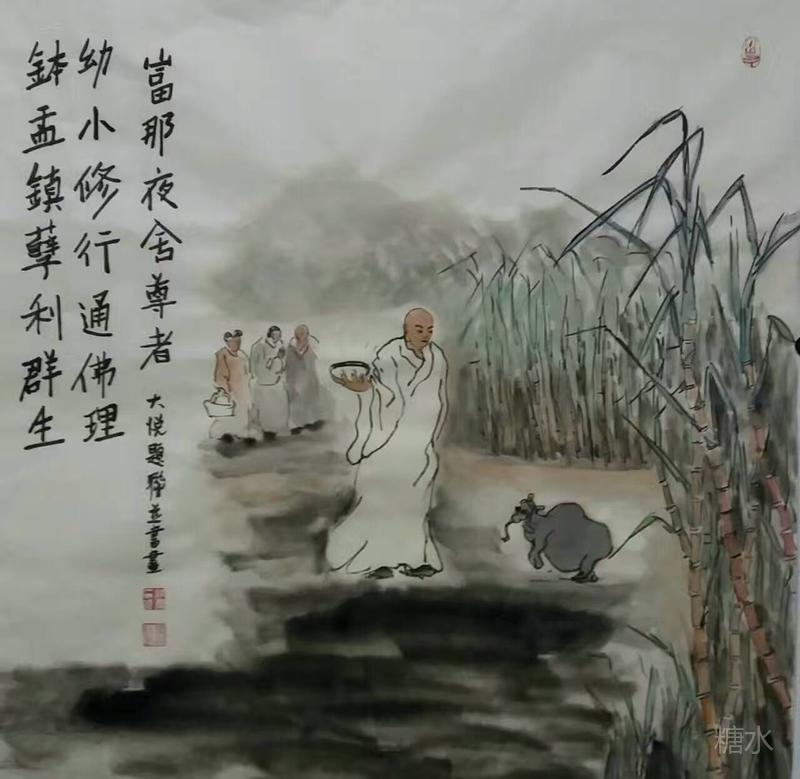 富那夜舍尊者
大悦題聯並書畫
幼小修行通佛理
鉢盂鎮孽利群生
糖水